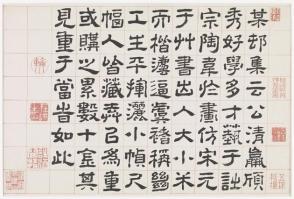 某邨集云公清羸頎
秀好學多才藝于詩
宗陶韋於畫仿宋元
于草書出入大小米
而楷灋稱
工生平揮灑小幀尺
幅人皆藏弆為重
或購之累數十金其
見重于當旹如此